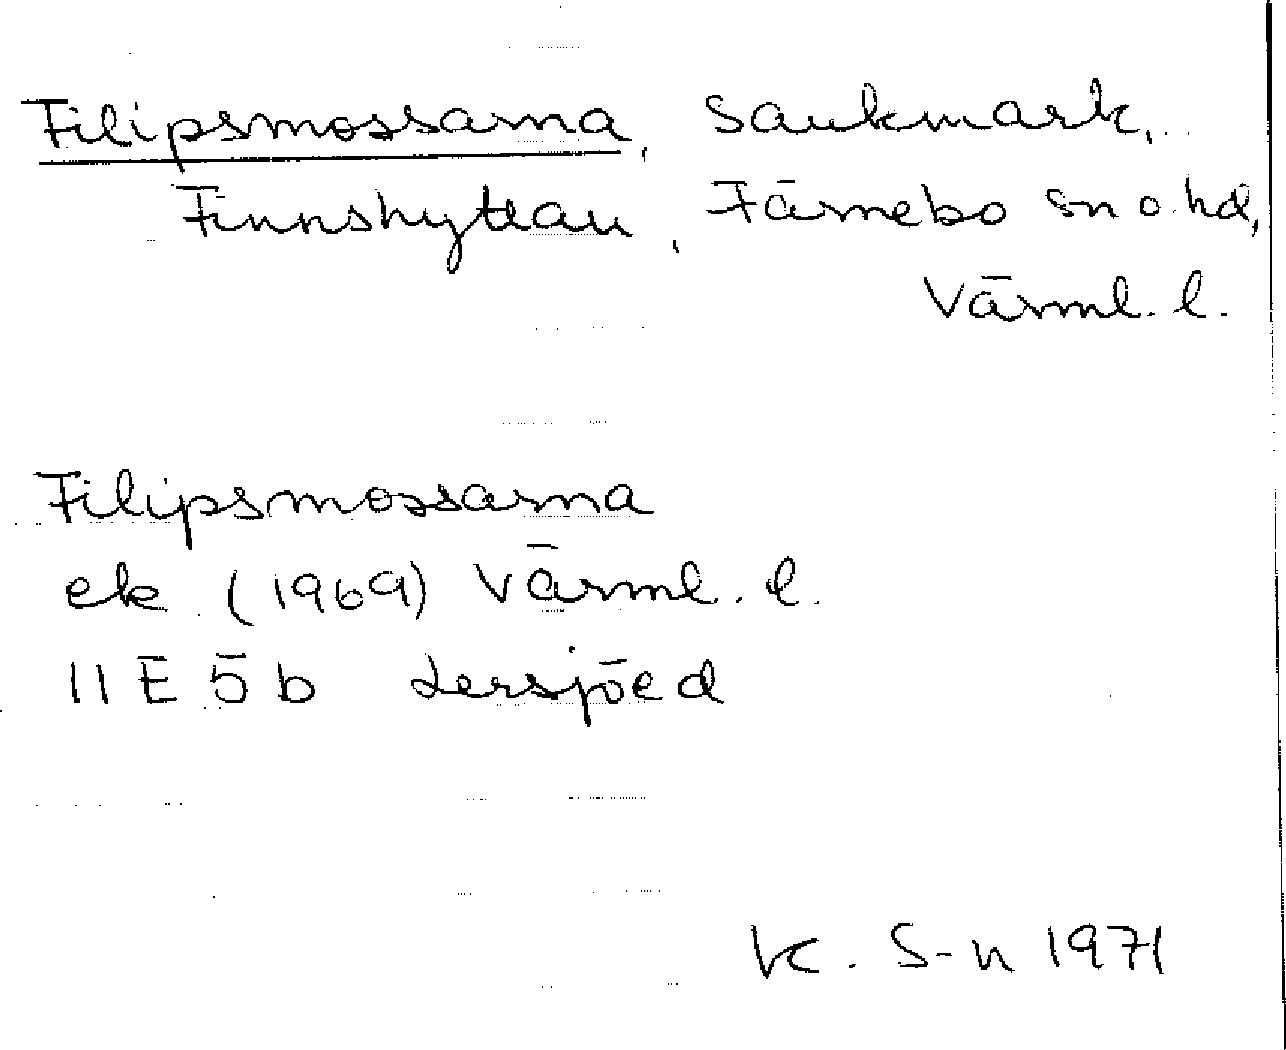 Filipsmossarna, Sankmark,
Finnshyttan, Färnebo sn o. hd,
Värml. l.
Filipsmossarna
ek (1969) Värml. l.
11E 5b Lersjöed
K. S-n 1971